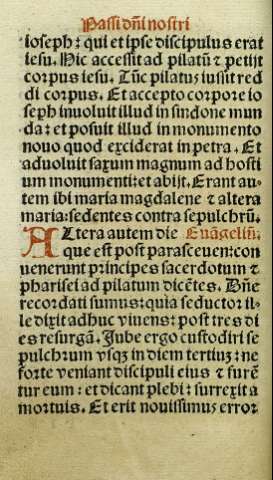 Passi dñi nostri
ioseph: qui et ipse discipulus erat
iesu. Hic accessit ad pilatũ ⁊ petijt
corpus iesu. Tũc pilatus iussit red
di corpus. Et accepto corpore io
seph inuoluit illud in sindone mun
da: et posuit illud in monumento
nouo quod exciderat in petra. Et
aduoluit saxum magnum ad hosti
um monumenti: et abijt. Erant au
tem ibi maria magdalene ⁊ altera
maria: sedentes contra sepulchrũ.
Altera autem die Euãgeliũ.
que est post parasceuen: con
uenerunt principes sacerdotum ⁊
pharisei ad pilatum dicẽtes. Dñe
recordati sumus: quia seductor il-
le dixit adhuc viuens: post tres di
es resurgã. Jube ergo custodiri se
pulchrum vsqꝫ in diem tertiuꝫ: ne
forte veniant discipuli eius ⁊ furẽ
tur eum: et dicant plebi: surrexit a
mortuis. Et erit nouissimus error